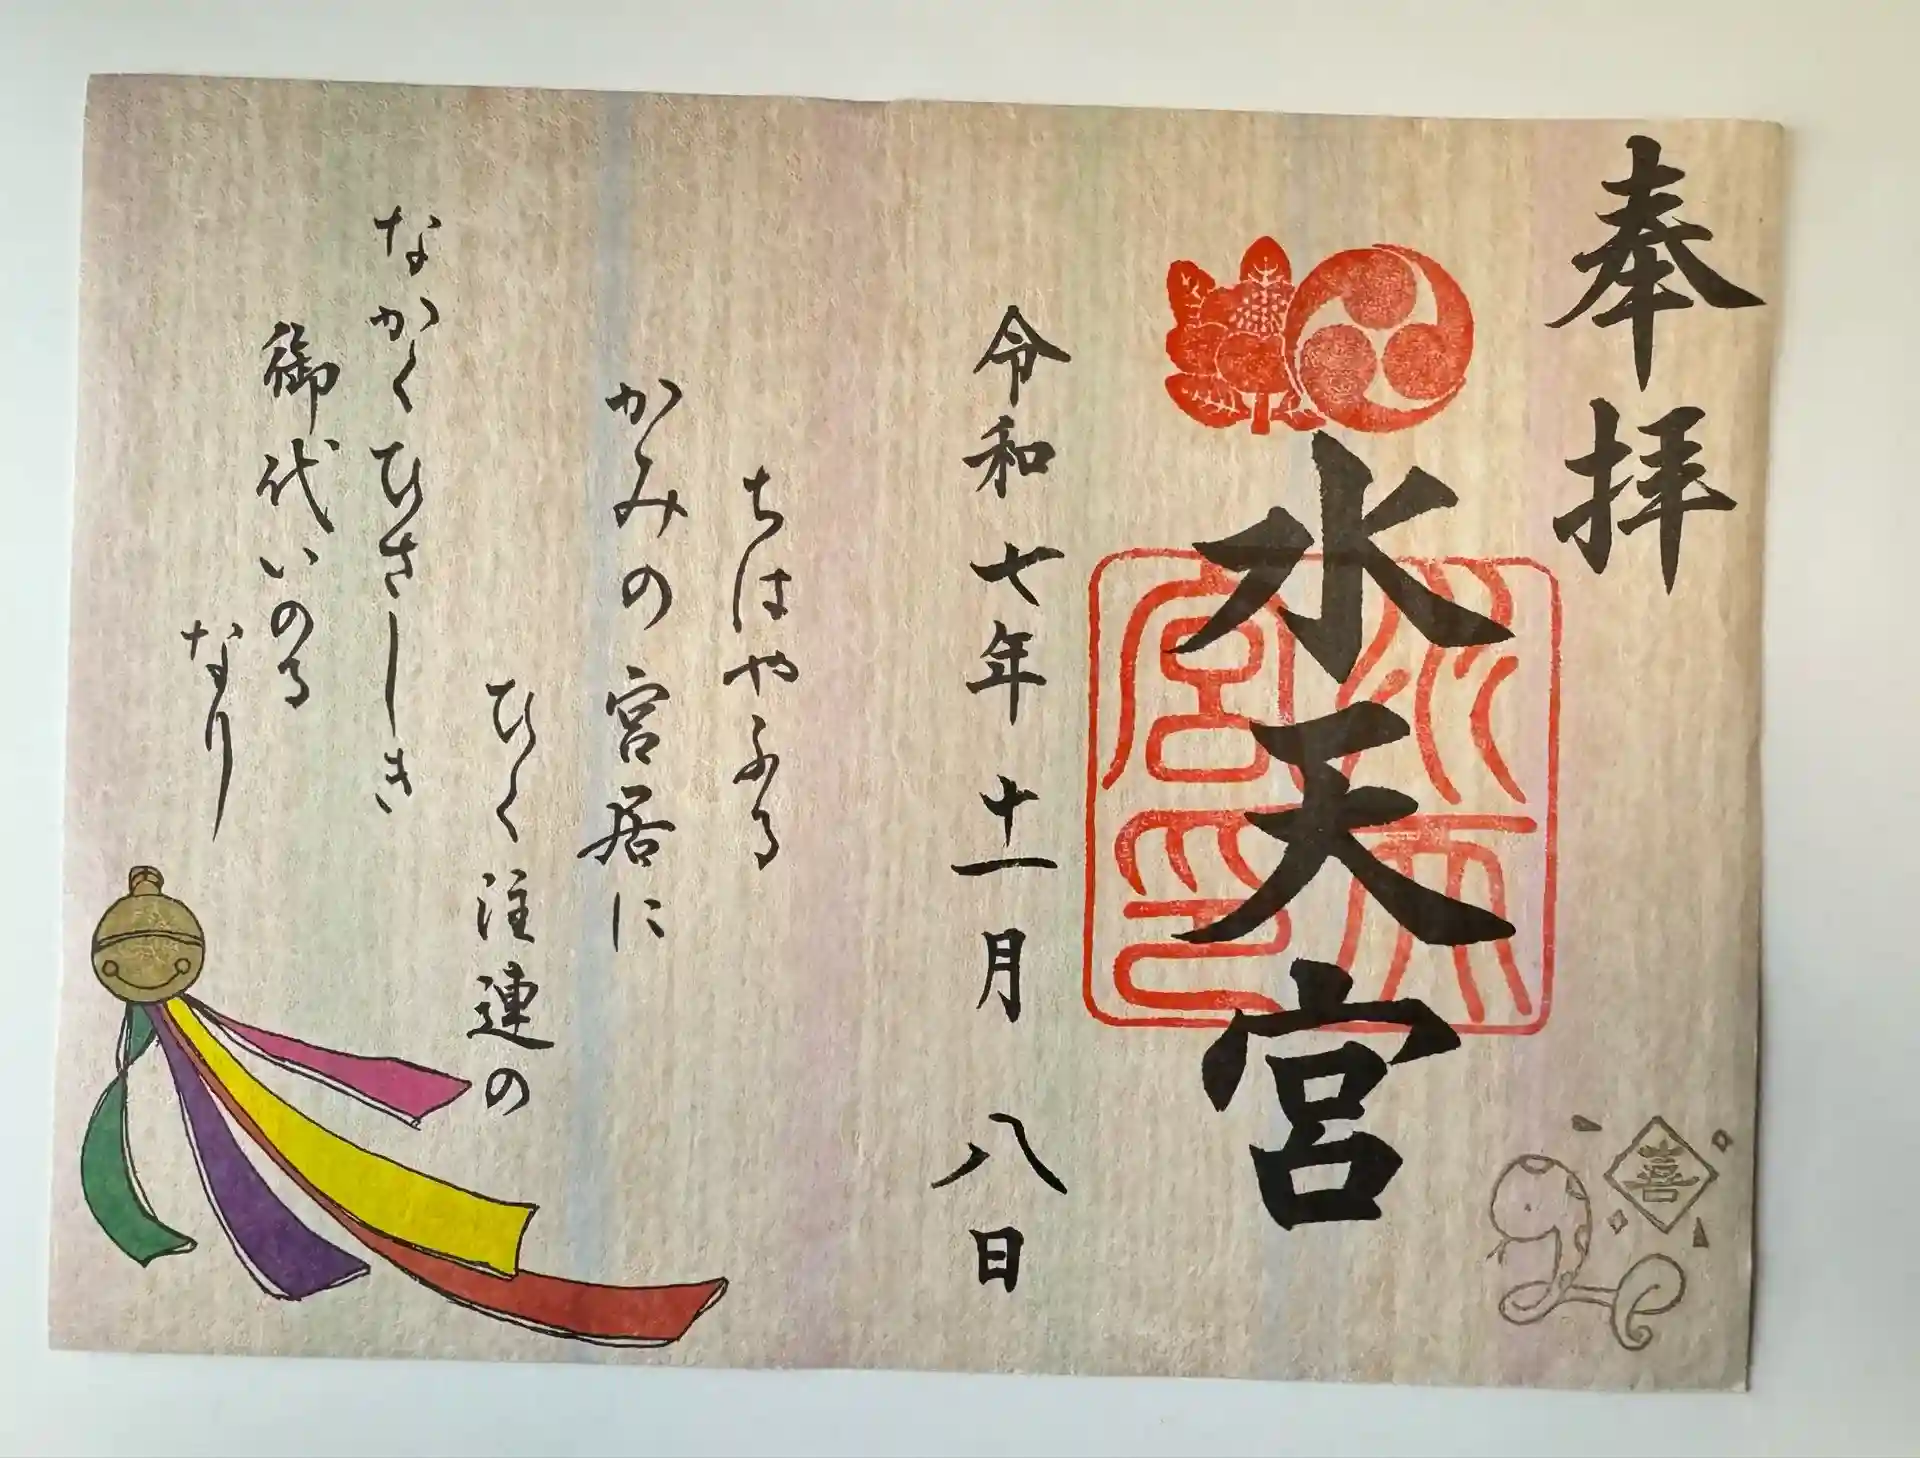 奉拝
水天宮
水天宮印
令和七年十一月八日
ちはやふる
かみの宮居に
ひく注連の
なかくひさしき
御代いのる
なり
喜